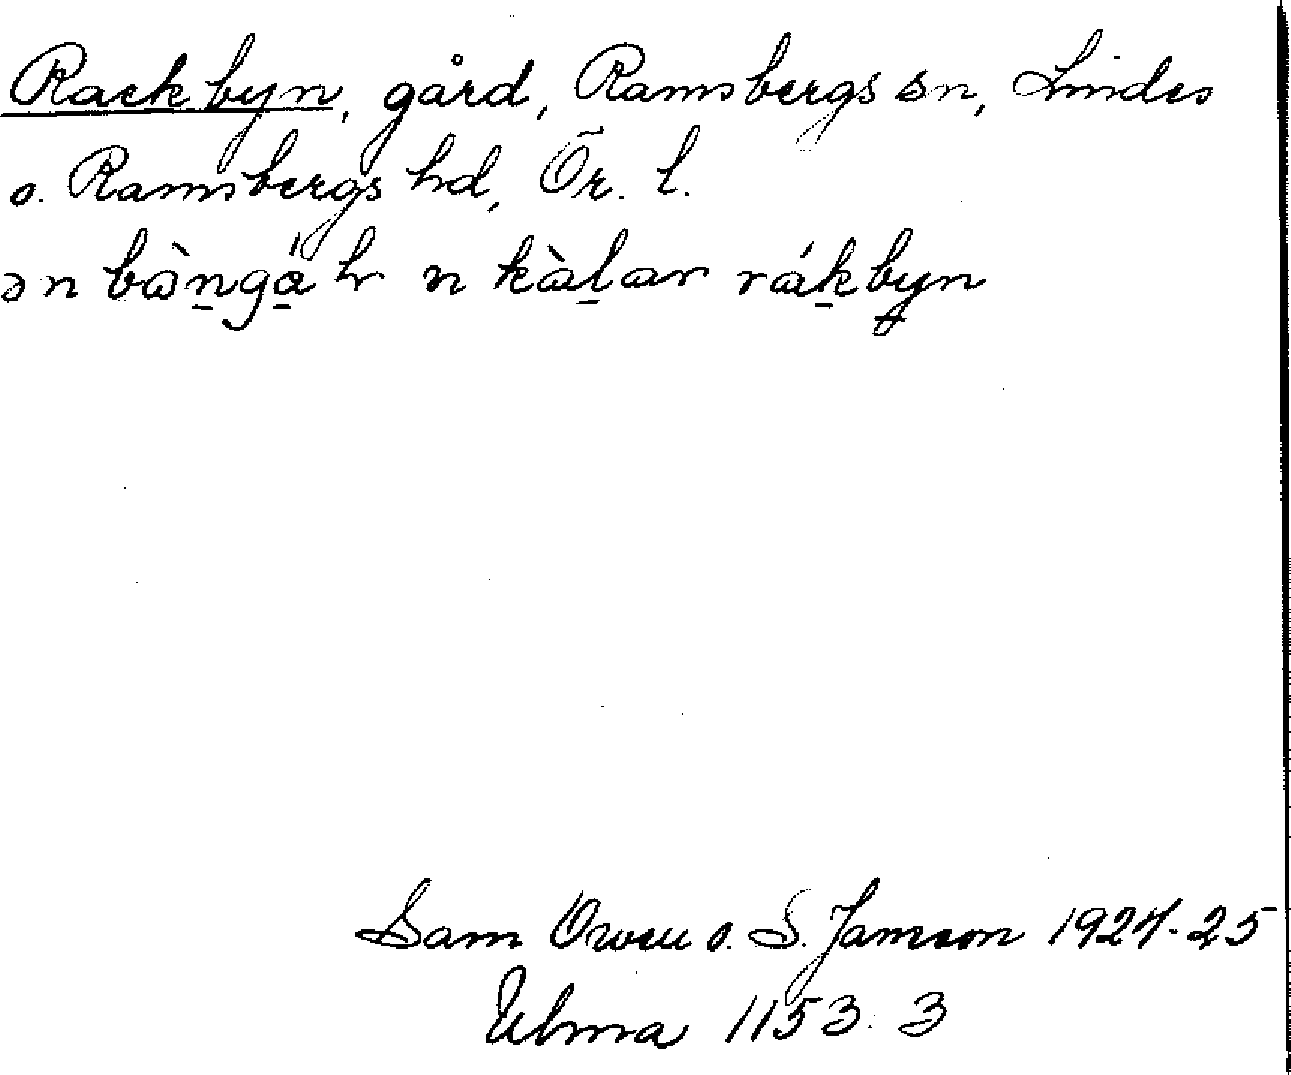 Rackbyn, gård, Ramsbergs sn, Lindes
o. Ramsbergs hd, Ör. l.
ən bàn̠gá̠r n kàl̠ar rák̠byn
Sam Owen o. S. Jamson 1924-25
Ulma 1153:3